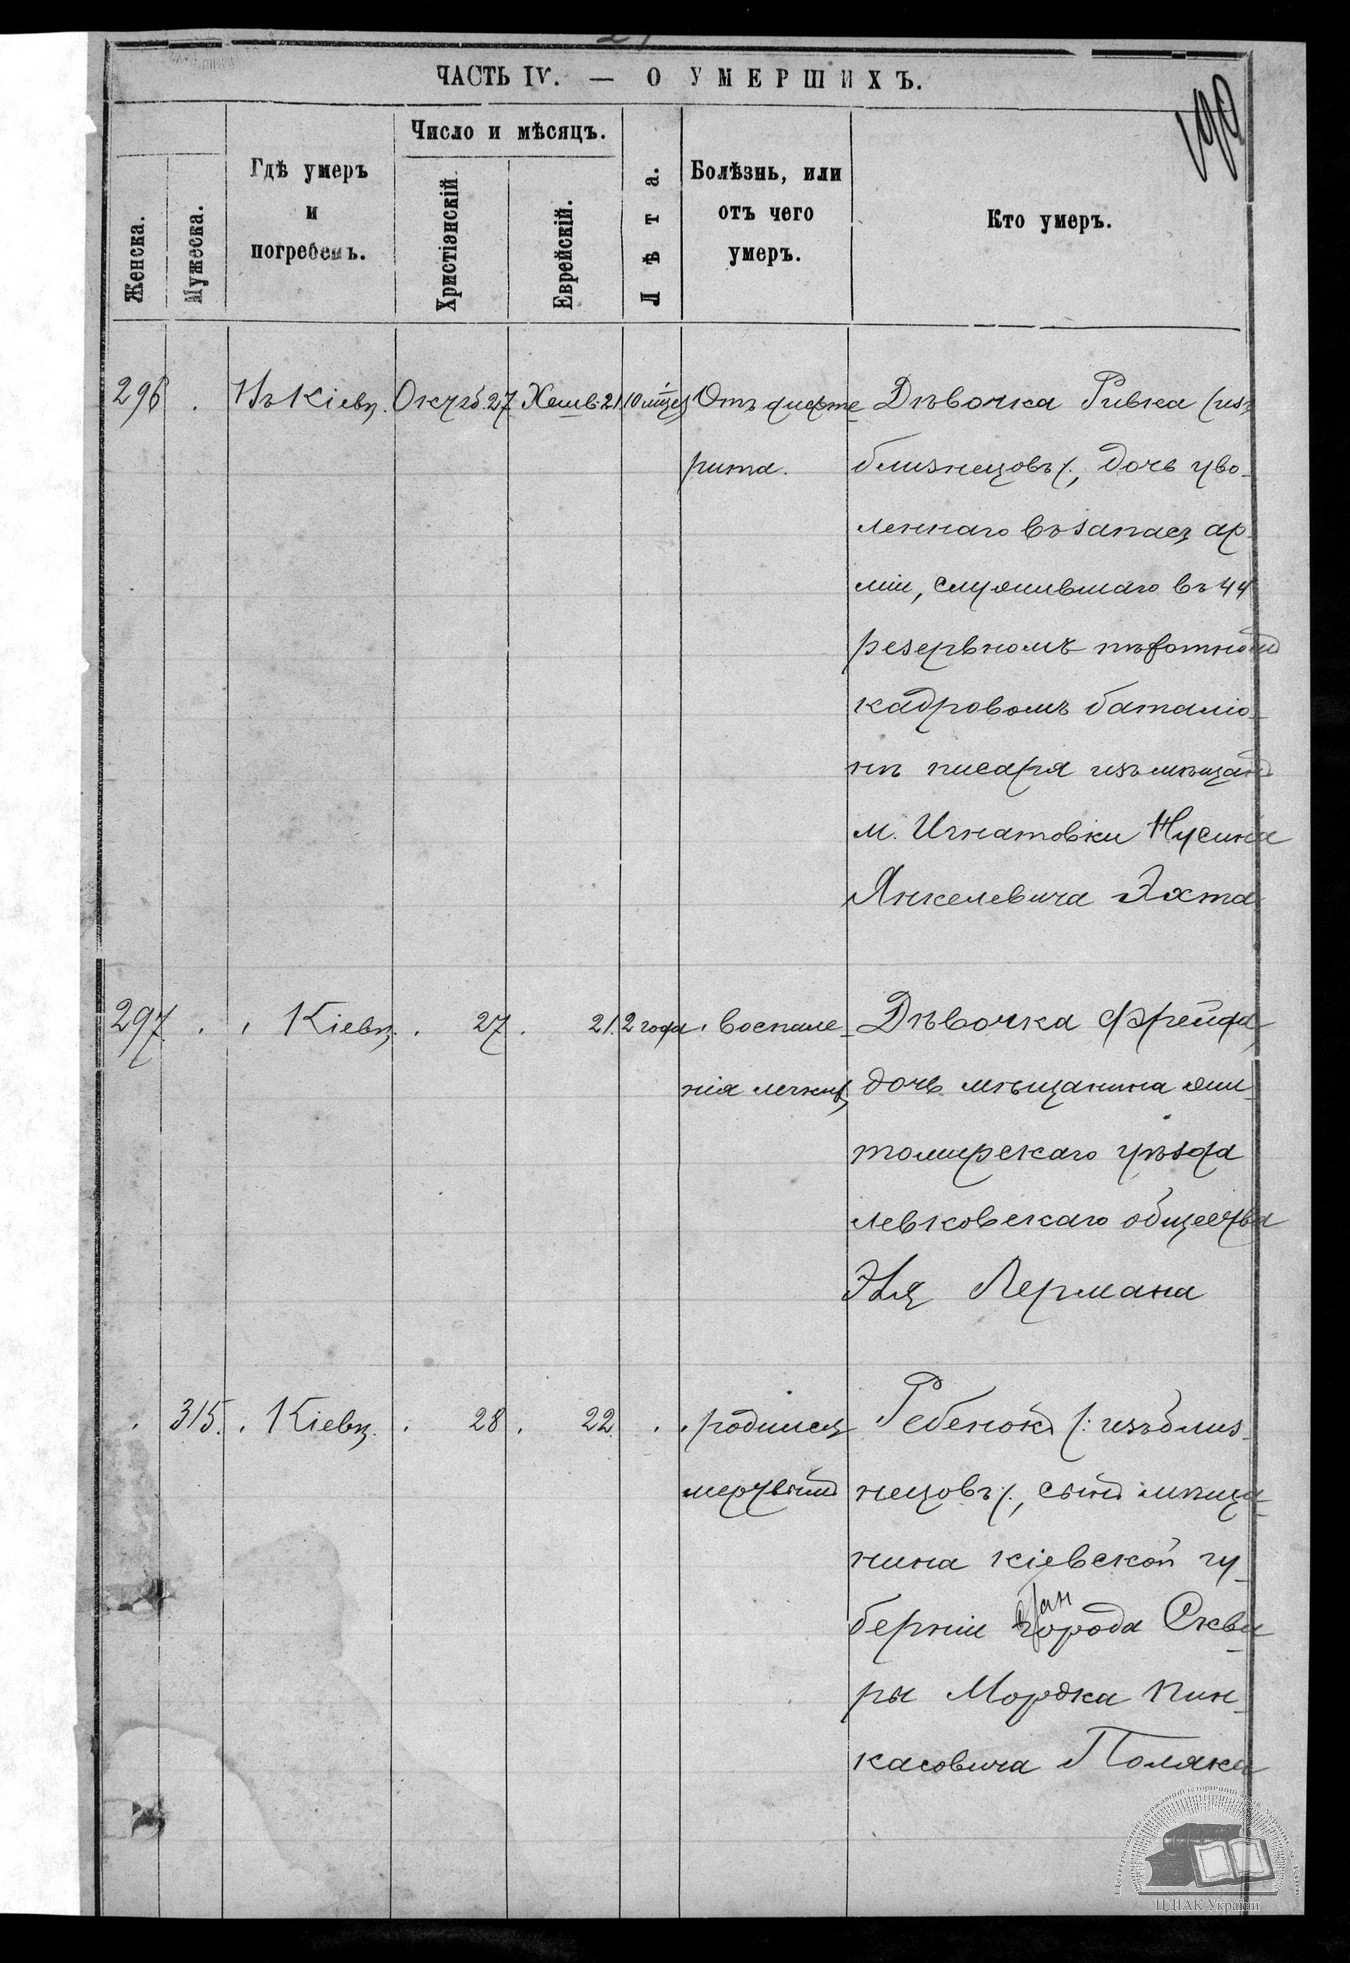 ЧАСТЬ IV. — О УМЕРШИХЪ.
Женска.
Мужеска.
Гдѣ умеръ
и
погребенъ.
Число и мѣсяцъ.
Христіанскій
Еврейскій.
Лѣта.
Болѣзнь, или
отъ чего
умеръ.
Кто умеръ.
296 . Въ Кіевѣ. Октяб. 27 Хешв. 21 10 мѣсяц. Отъ дифте- Дѣвочка Ривка /изъ
рита. близнецовъ/, дочь уво-
леннаго въ запасъ ар-
міи, служившаго въ 44
резервномъ пѣхотномъ
кадровомъ баталіо-
нѣ писаря изъ мѣщанъ
м. Игнатовки Нусина
Янкелевича Эхта
297. . Кіевѣ. . 27. 21. 2 года . воспале- Дѣвочка Фрейда,
нія легкихъ, дочь мѣщанина жи-
томирскаго уѣзда
левковскаго общества
Эля Лермана
. 315. . Кіевѣ. . 28. 22. . . родился Ребенокъ /: изъ близ-
мертвымъ нецовъ/, сынъ мѣща-
нина кіевской гу-
берніи города Скви-
ры Мордка Пин-
касовича Поляка
ЦДІАК України